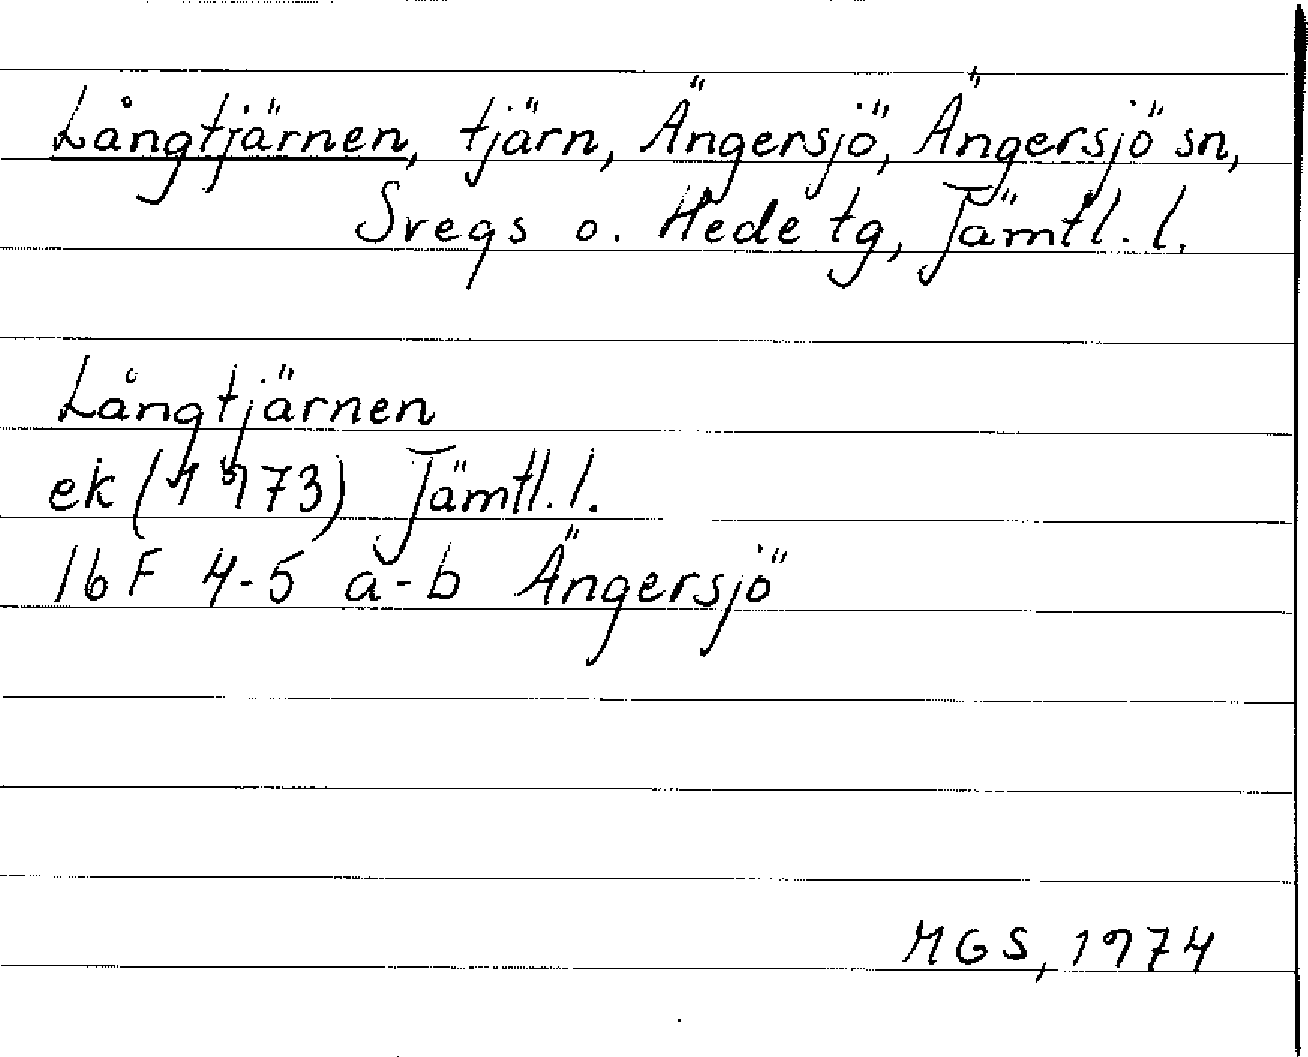 Långtjärnen, tjärn, Ängersjö, Ängersjö sn,
Svegs o. Hede tg, Jämtl. l.
Långtjärnen
ek (1973) Jämtl. l.
16F 4-5 a-b Ängersjö
MGS, 1974